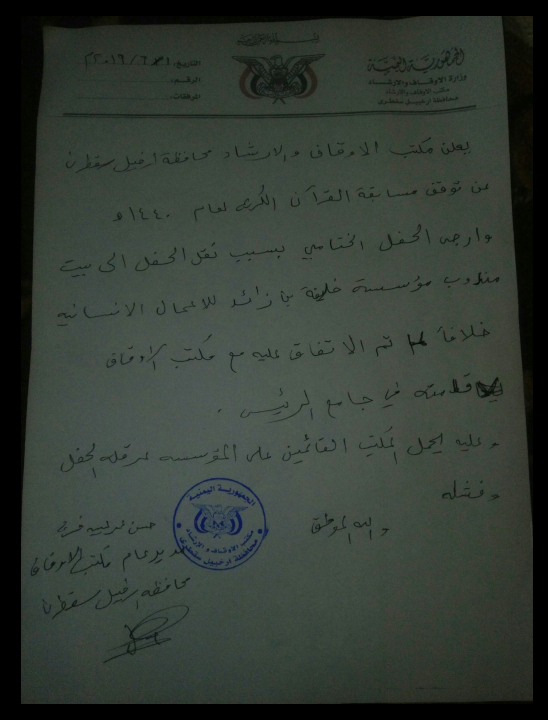 الجمهورية اليمنية
وزارة الاوقاف والارشاد
مكتب الاوقاف والارشاد
محافظة ارخبيل سقطرى
التاريخ:
الرقم:
المرفقات:
يعلن مكتب الاوقاف والارشاد محافظة ارخبيل سقطرى
عن توقف مسابقة القرآن الكريم لعام ١٤٤٠هـ
وارجى الحفل الختامي بسبب نقل الحفل الى بيت
مندوب مؤسسة خليفة بن زائد للاعمال الانسانيه
خلافاً لما تم الاتفاق عليه مع مكتب الاوقاف
باقامته في جامع الرئيس.
وعليه يحمل المكتب القائمين على المؤسسه عرقلة الحفل
وفشله
والله الموفق
مدير عام مكتب الاوقاف
محافظه ارخبيل سقطرى
الجمهورية اليمنية
مكتب الاوقاف والارشاد
محافظة ارخبيل سقطرى